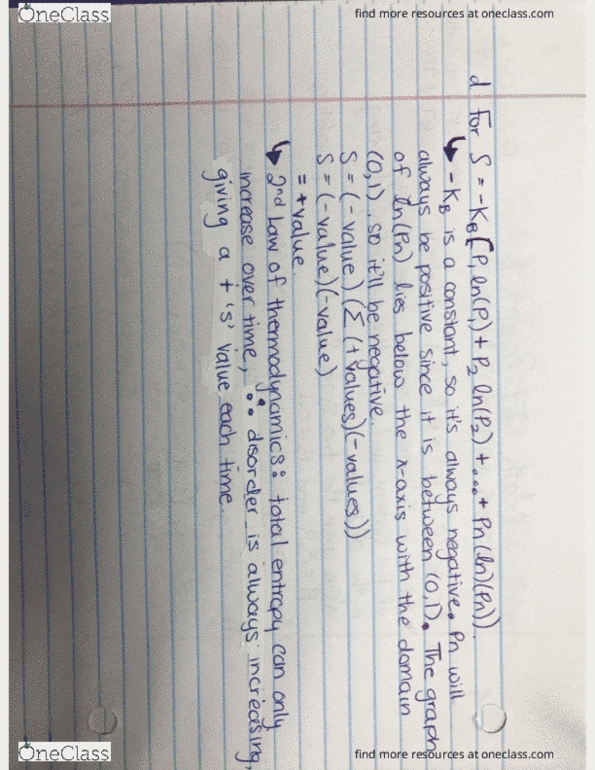 OneClass
find more resources at oneclass.com
d For S = -KB [P₁ ln(P₁) + P₂ ln(P₂) + ... + Pn (ln)(Pn)).
↳ -KB is a constant, so it's always negative. Pn will
always be positive since it is between (0,1). The graph
of ln(Pn) lies below the x-axis with the domain
(0,1), so it'll be negative.
S = (-value) (Σ (+values)(-values))
S = (-value)(-value)
= +value.
↳ 2nd Law of thermodynamics: total entropy can only
increase over time, ∴ disorder is always increasing,
giving a + 's' value each time.
OneClass
find more resources at oneclass.com